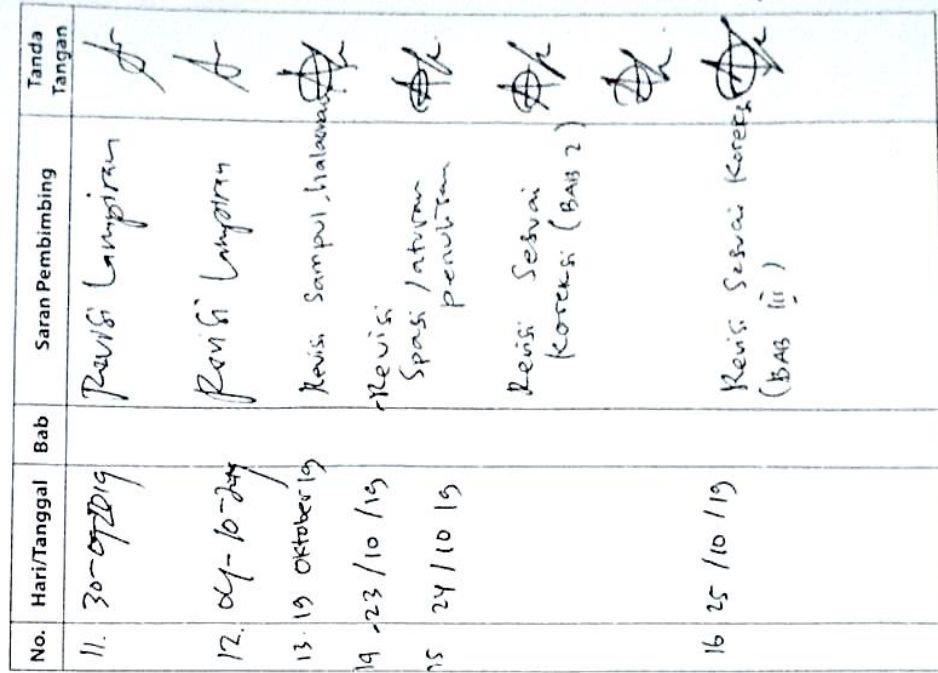 No. Hari/Tanggal Bab Saran Pembimbing Tanda Tangan
11. 30-09-2019 Revisi Lampiran
12. 04-10-2019 Revisi Lampiran
13. 19 Oktober 19 Revisi Sampul, halaman
14 -23/10/19 -Revisi
Spasi/aturan
penulisan
15 24/10 19 Revisi Sesuai
Koreksi (BAB 2)
16 25/10/19 Revisi Sesuai Koreksi
(BAB III)